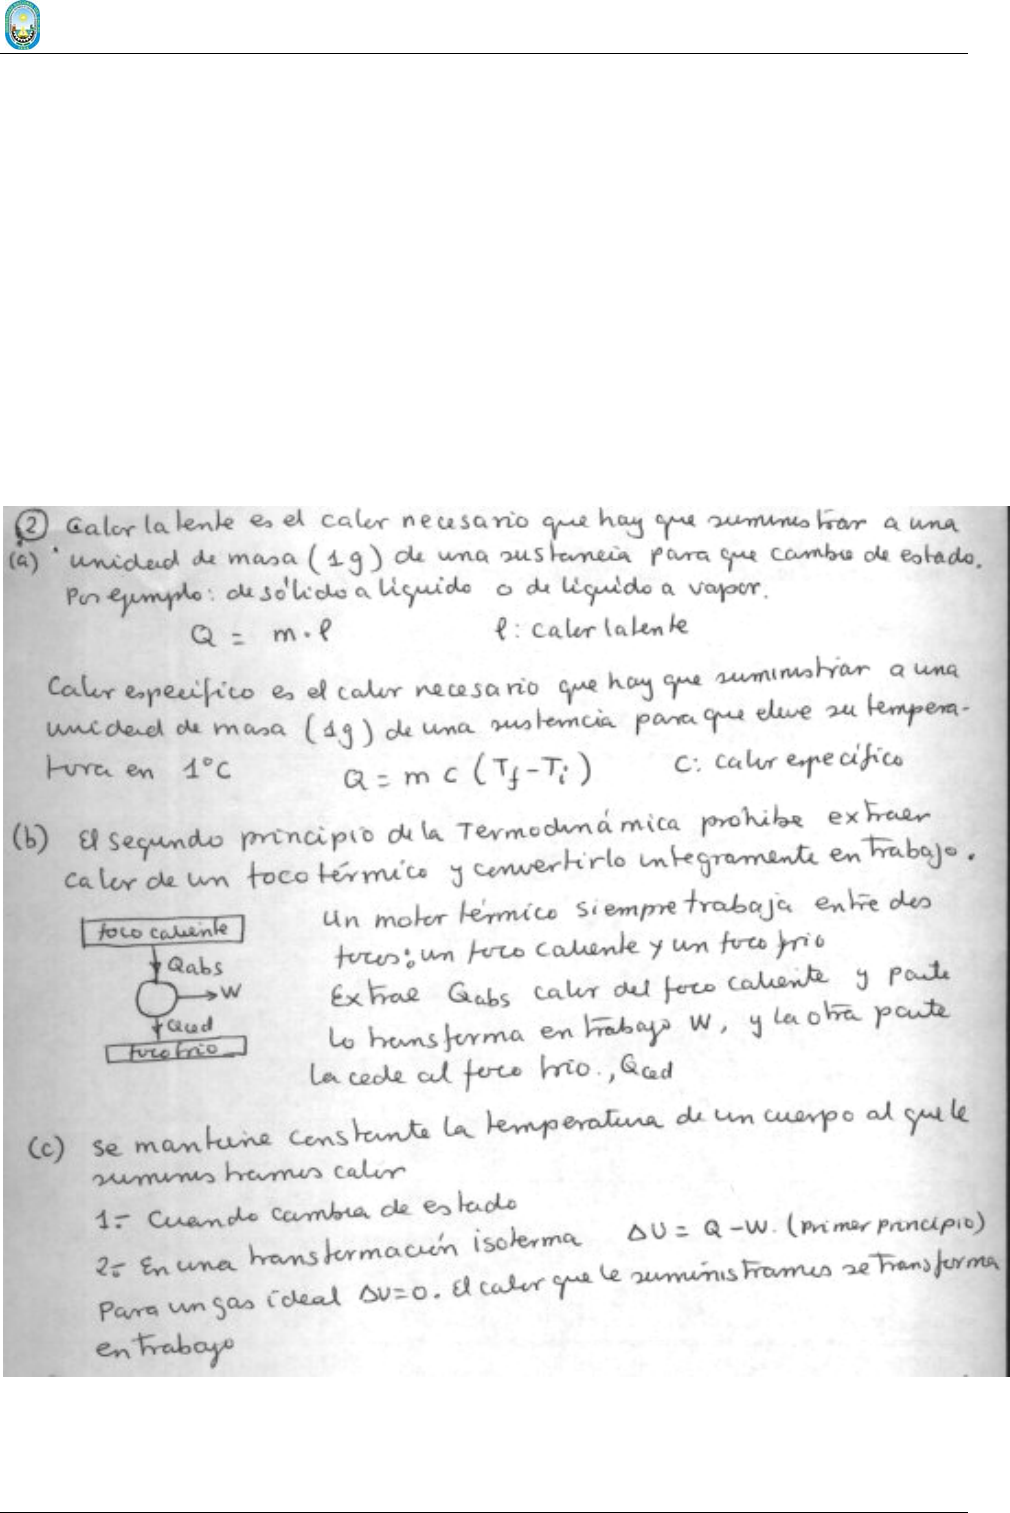 ② Calor latente es el calor necesario que hay que suministrar a una
(a) unidad de masa (1g) de una sustancia para que cambie de estado.
Por ejemplo: de sólido a líquido o de líquido a vapor.
Q = m · l l: calor latente
Calor específico es el calor necesario que hay que suministrar a una
unidad de masa (1g) de una sustancia para que eleve su tempera-
tura en 1°C Q = m c (Tf - Ti) C: calor específico
(b) El segundo principio de la Termodinámica prohibe extraer
calor de un foco térmico y convertirlo integramente en trabajo.
foco caliente
Qabs
W
Qced
foco frio
Un motor térmico siempre trabaja entre dos
focos: un foco caliente y un foco frio
Extrae Qabs calor del foco caliente y parte
lo transforma en trabajo W, y la otra parte
la cede al foco frio., Qced
(c) se mantiene constante la temperatura de un cuerpo al que le
suministramos calor
1.- Cuando cambia de estado
2.- En una transformación isoterma ΔU = Q - W. (primer principio)
Para un gas ideal ΔU=0. El calor que le suministramos se transforma
en trabajo